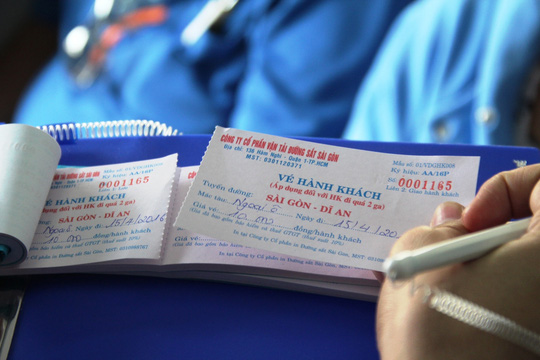 ĐƯỜNG SẮT SÀI GÒN
Ký hiệu: AA/16P
0001165
VÉ HÀNH KHÁCH
(Áp dụng đối với HK đi quá 2 ga)
SÀI GÒN - DĨ AN
Ngoại ô Ngày đi: 15/4/2016
10 000 đồng/hành khách
CÔNG TY CỔ PHẦN VẬN TẢI ĐƯỜNG SẮT SÀI GÒN
Địa chỉ: 136 Hàm Nghi - Quận 1 - TP.HCM
MST:
Mẫu số: 01/VDGHK008
Ký hiệu: AA/16P
Số: 0001165
Liên 2: Giao hành khách
VÉ HÀNH KHÁCH
(Áp dụng đối với HK đi quá 2 ga)
Tuyến đường: SÀI GÒN - DĨ AN
Mác tàu: Ngoại ô Ngày đi: 15/4/20
Giá vé: 10 000 đồng/hành khách
(Giá đã bao gồm bảo hiểm và thuế GTGT (thuế suất 10%)
In tại Công ty Cổ phần in Đường sắt Sài Gòn, MST: